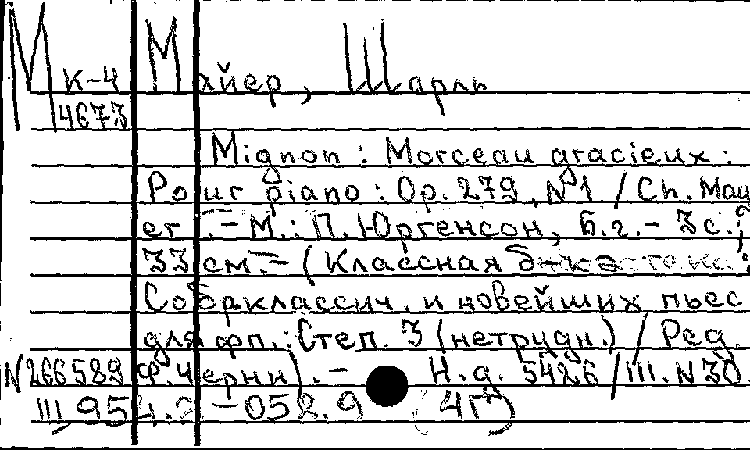 М к-4 Майер, Шарль
4673
Mignon : Morceau gracieux :
Pour piano : Op. 279, №1 / Ch. May
er .- М. : П. Юргенсон, б.г. - 3 с.;
33 см. - (Классная
Собр классич. и новейших пьес
для фп. : Степ. 3 (нетрудн.) / Ред.
№266589 Ф. Черни). - Н.д. 5426 /III. N 30.
III 954.2-052.9 (4Г)